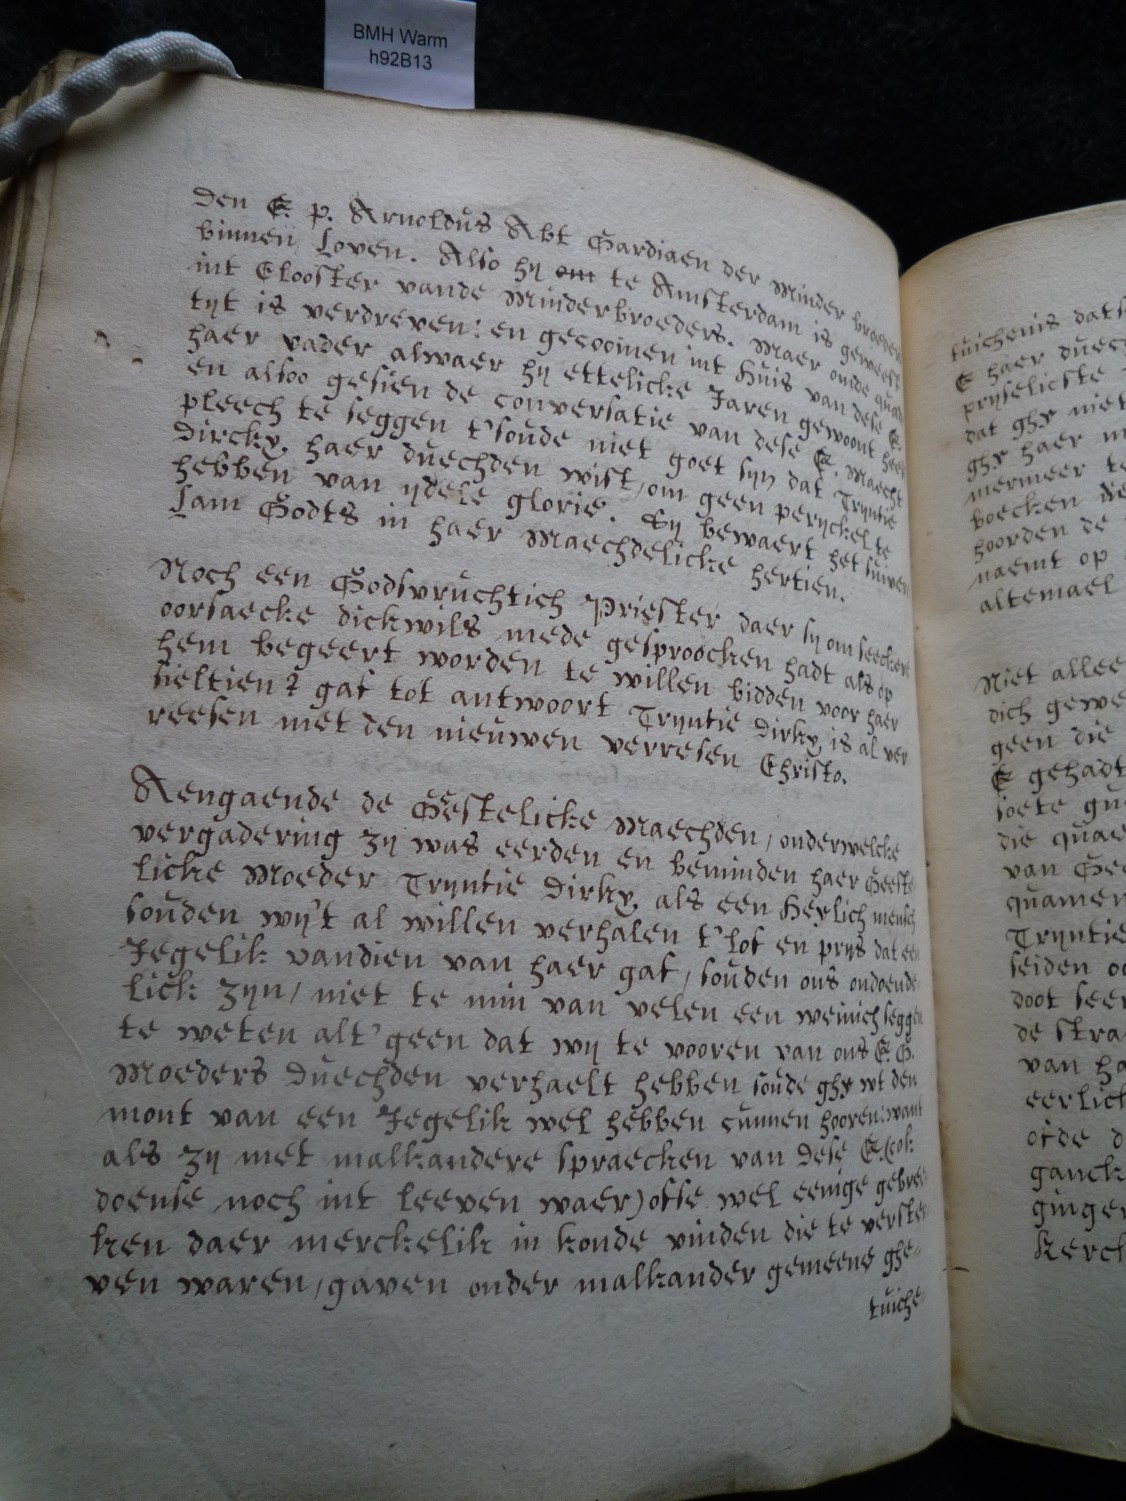 BMH Warm
h92B13
Den E. P. Arnoldus Abt Gardiaen der Minder braeder
binnen Loven. Also hij om te Amsterdam is geweest
int Clooster vande Minderbroeders. Maer onde quade
tijt is verdreven: en gecoomen int Huis van dese E.
haer vader alwaer hij ettelicke Jaren gewoont heeft
en alsoo gesien de conversatie van dese E. Maecht
pleech te seggen t'soude niet goet sijn dat Tryntie
Dircky, haer duechden wist, om geen peryckel te
hebben van ydele glorie. Hij bewaert het suiver
Lam Godts in haer Maechdelicke hertien.
Noch een Godsvruchtich Priester daer sij om seeckere
oorsaecke dickwils mede gesproocken hadt als op
hem begeert worden te willen bidden voor haer
sieltien? gaf tot antwoort Tryntie Dirky, is al ver
reesen met den nieuwen verresen Christo.
Aengaende de Geestelicke Maechden, onderwelcke
vergadering zij was eerden en beminden haer Geeste
licke Moeder Tryntie Dirky, als een Heylich mensch
souden wij't al willen verhalen t'lof en prijs dat een
Jegelik vandien van haer gaf, souden ons ondoende
lick zijn, niet te min van velen een weinich seggen
te weten alt'geen dat wij te vooren van ons E. G.
Moeders Duechden verhaelt hebben soude ghy wt den
mont van een Jegelik wel hebben cunnen hooren: want
als zij met malkandere spraecken van dese E. (ook
doense noch int leeven waer) ofse wel eenige gebree
ken daer merckelik in konde vinden die te verster
ven waren, gaven onder malkander gemeene ghe=
tuiche
tuichenis dats
E haer duech
pryselicste
dat ghy niet
ghy haer
mermeer te
boecken die
hoorden de
naemt op
altemael
Niet allee
dich gewe
geen die
E gehadt
soete
die quae
van Gee
quamen
Tryntie
seiden
doot seer
de stra
van ha
eerlick
ofde d
ganck
ginger
kerck